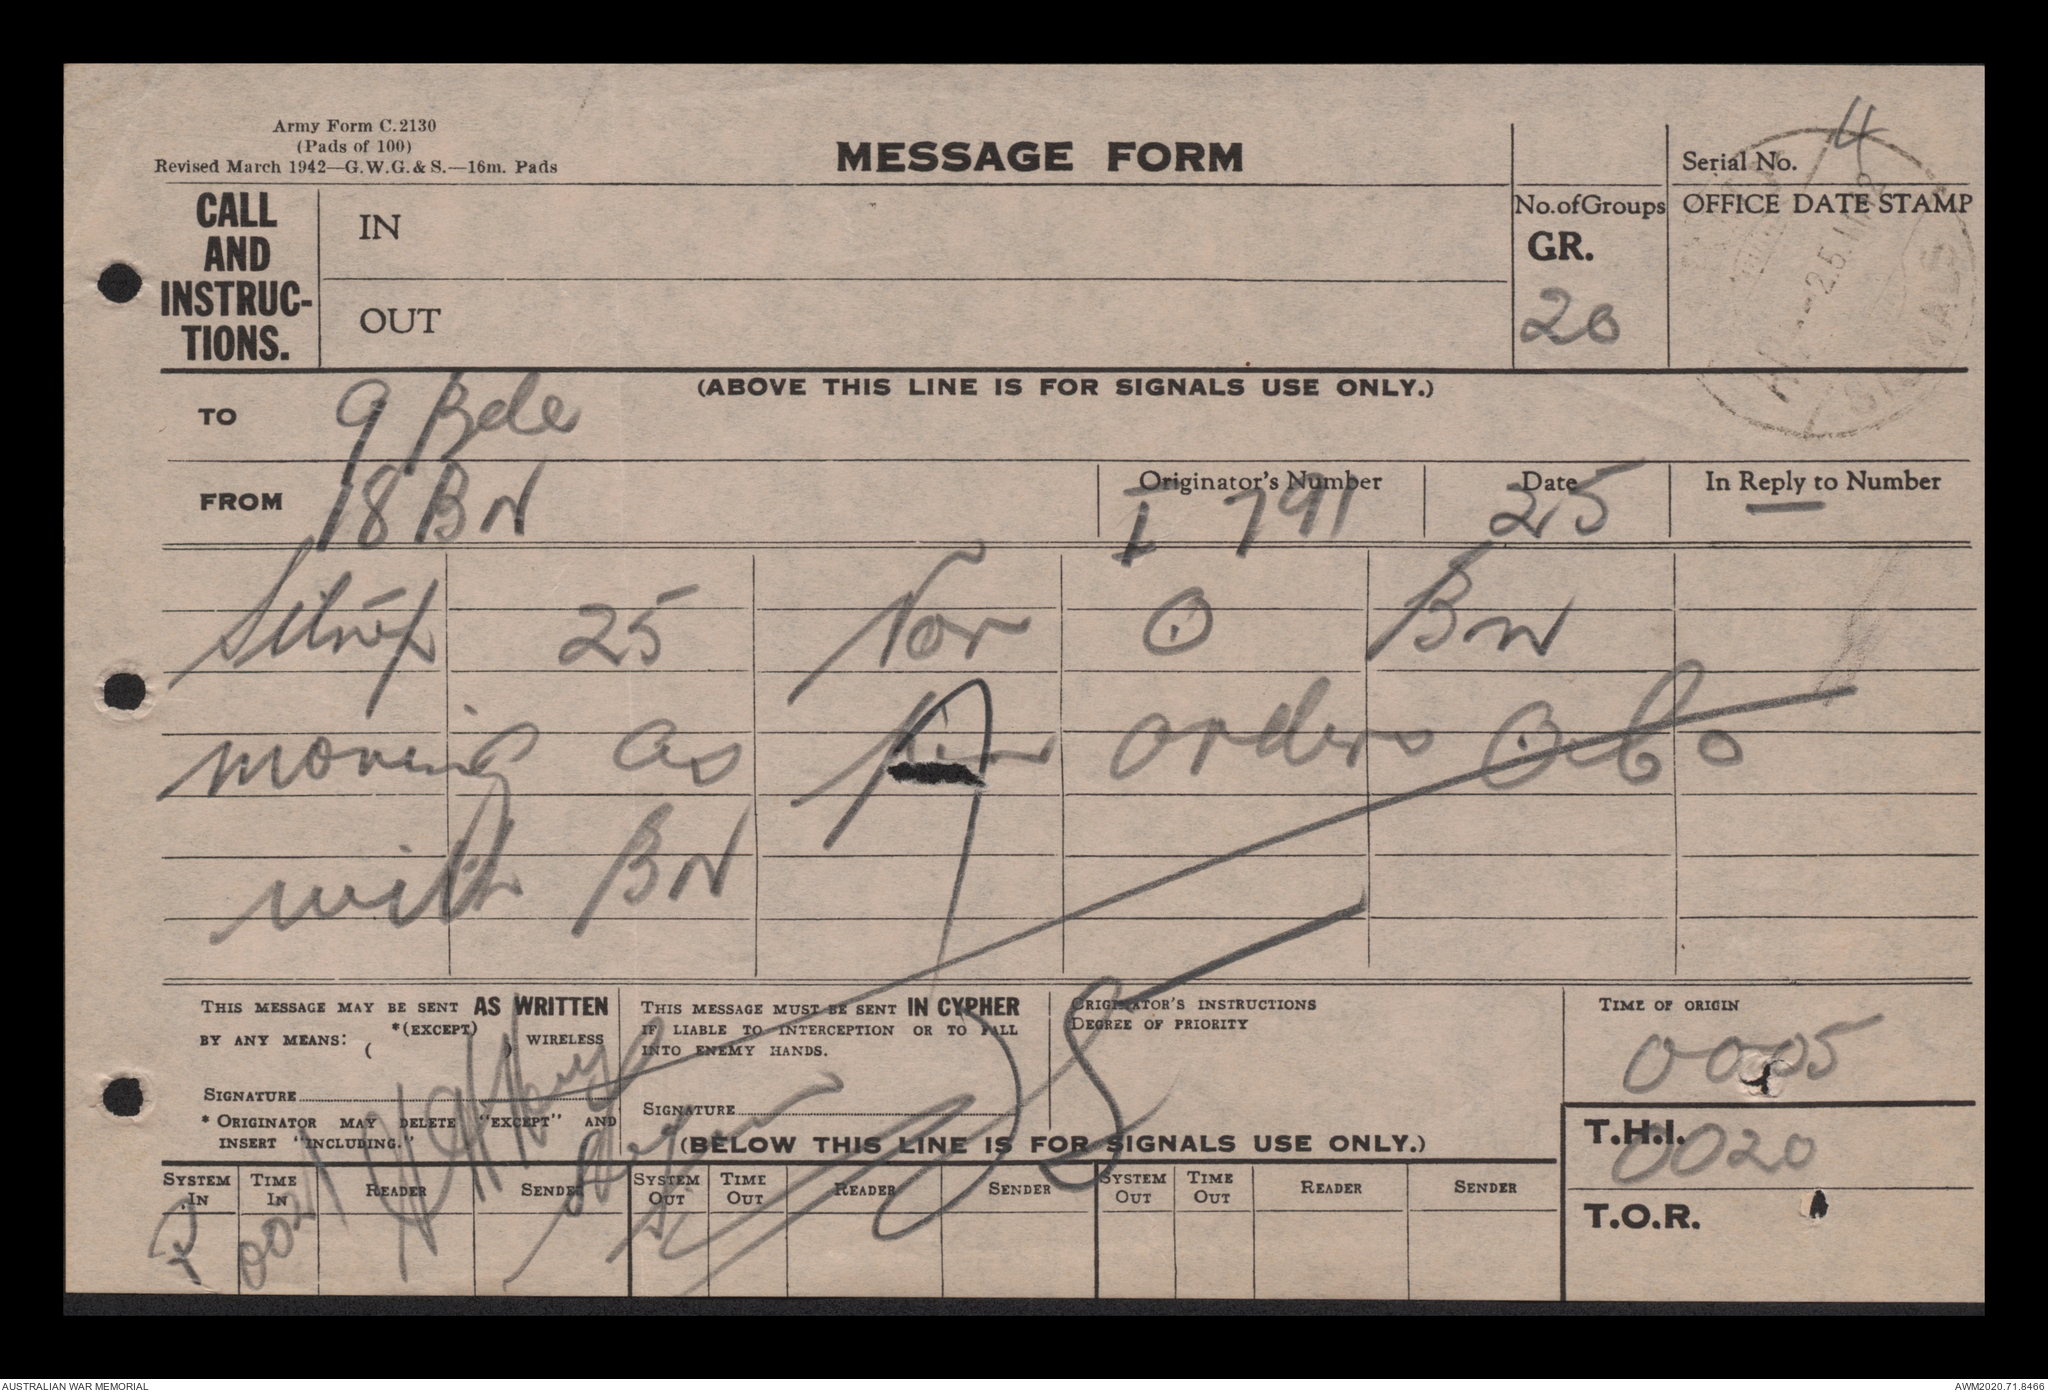 Army Form C.2130
(Pads of 100)
Revised March 1942—G.W.G.& S.—16m. Pads
MESSAGE FORM
Serial No. 4
CALL AND INSTRUC-TIONS.
IN
OUT
No. of Groups
GR.
20
OFFICE DATE STAMP
25.11.42
SIGNALS
(ABOVE THIS LINE IS FOR SIGNALS USE ONLY.)
TO 9 Bde
FROM 18 BN
Originator's Number I 791
Date 25
In Reply to Number —
Sitrep 25 Nov O BN
moving as per orders O.C.O
with BN
THIS MESSAGE MAY BE SENT AS WRITTEN
BY ANY MEANS: *(EXCEPT) ( ) WIRELESS
SIGNATURE
* ORIGINATOR MAY DELETE "EXCEPT" AND
INSERT "INCLUDING."
THIS MESSAGE MUST BE SENT IN CYPHER
IF LIABLE TO INTERCEPTION OR TO FALL
INTO ENEMY HANDS.
SIGNATURE
ORIGINATOR'S INSTRUCTIONS
DEGREE OF PRIORITY
TIME OF ORIGIN
0005
(BELOW THIS LINE IS FOR SIGNALS USE ONLY.)
T.H.I.
0020
T.O.R.
SYSTEM IN TIME IN READER SENDER SYSTEM OUT TIME OUT READER SENDER SYSTEM OUT TIME OUT READER SENDER
0021
AUSTRALIAN WAR MEMORIAL
AWM2020.71.8466